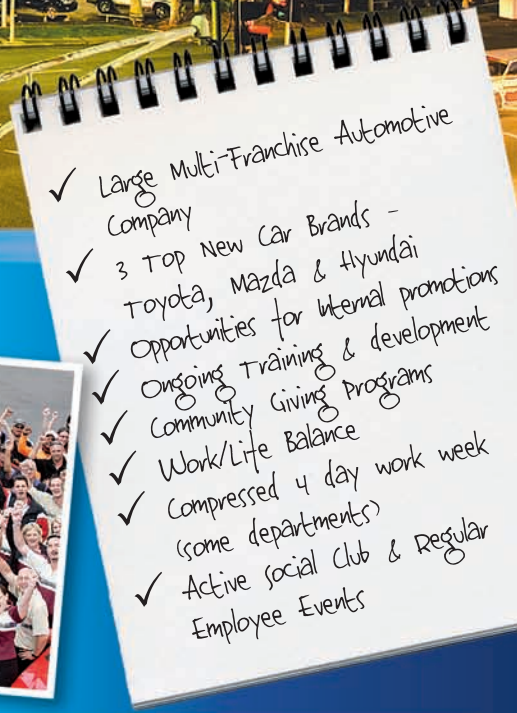 ✓ Large Multi-Franchise Automotive
Company
✓ 3 Top New Car Brands -
Toyota, Mazda & Hyundai
✓ Opportunities for Internal promotions
✓ Ongoing Training & development
✓ Community Giving Programs
✓ Work/Life Balance
✓ Compressed 4 day work week
(some departments)
✓ Active Social Club & Regular
Employee Events